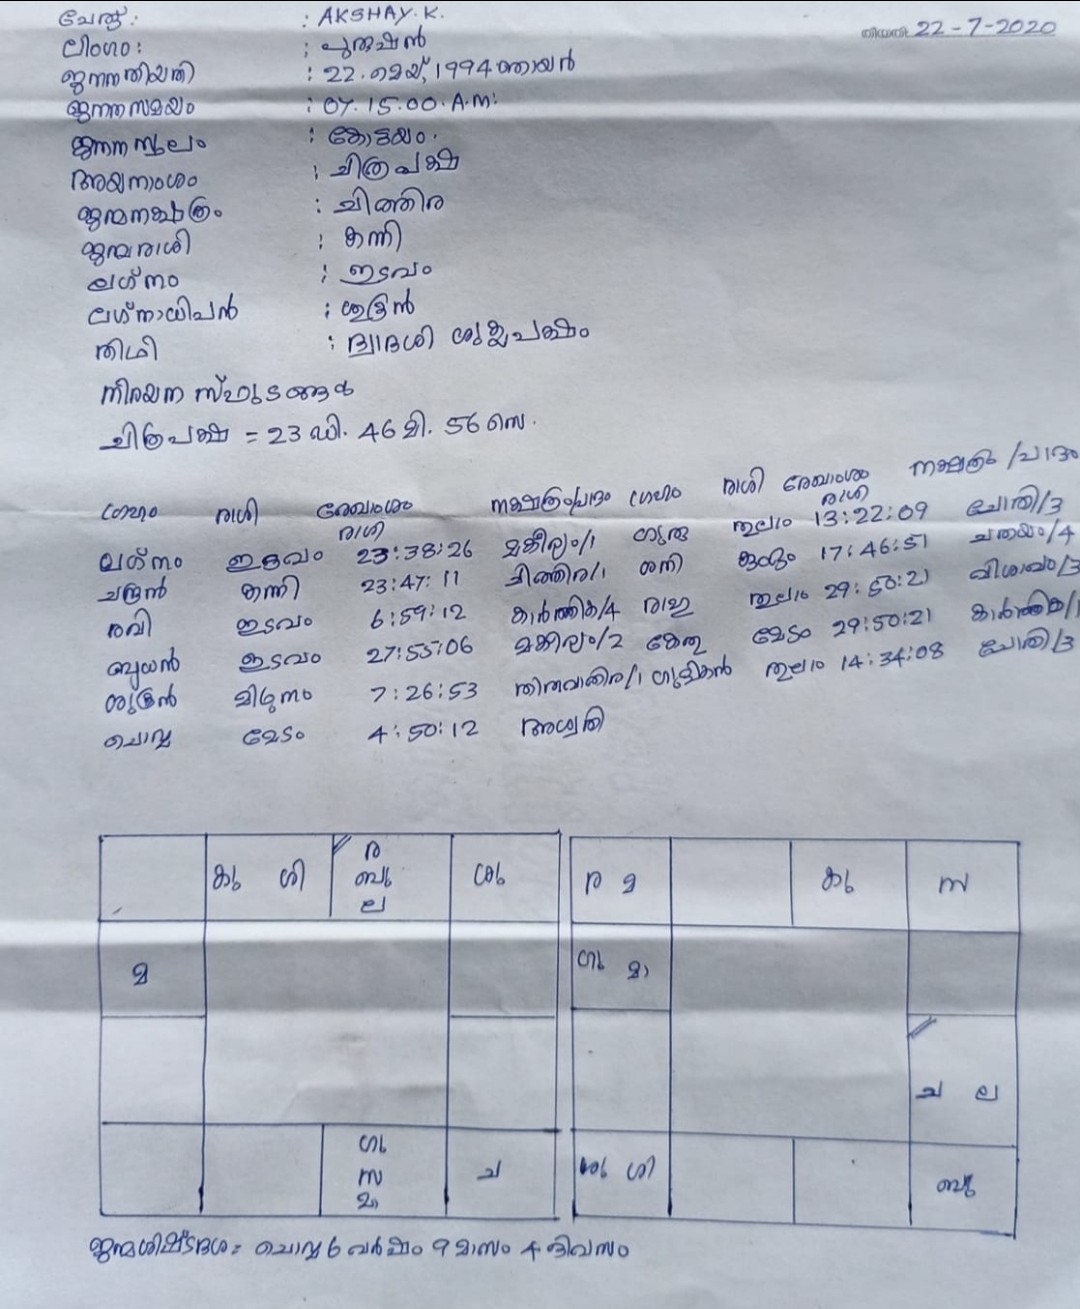 പേര് : : AKSHAY. K.
തിയതി 22-7-2020
ലിംഗം : : പുരുഷൻ
ജനനതിയതി : 22. മെയ്, 1994 ഞായർ
ജനനസമയം : 07.15.00. A.M.
ജനനസ്ഥലം : കോട്ടയം.
അയനാംശം : ചിത്രപക്ഷ
ജന്മനക്ഷത്രം : ചിത്തിര
ജന്മരാശി : കന്നി
ലഗ്നം : ഇടവം
ലഗ്നാധിപൻ : ശുക്രൻ
തിഥി : ദ്വാദശി ശുക്ലപക്ഷം
നിരയന സ്ഫുടങ്ങൾ
ചിത്രപക്ഷ = 23 ഡി. 46 മി. 56 സെ.
ഗ്രഹം രാശി രേഖാംശം നക്ഷത്രം/പാദം ഗ്രഹം രാശി രേഖാംശം നക്ഷത്രം/പാദം
രാശി രാശി
ലഗ്നം ഇടവം 23:38:26 മകീര്യം/1 ഗുരു തുലാം 13:22:09 ചോതി/3
ചന്ദ്രൻ കന്നി 23:47:11 ചിത്തിര/1 ശനി കുംഭം 17:46:51 ചതയം/4
രവി ഇടവം 6:59:12 കാർത്തിക/4 രാഹു തുലാം 29:50:21 വിശാഖം/3
ബുധൻ ഇടവം 27:55:06 മകീര്യം/2 കേതു മേടം 29:50:21 കാർത്തിക/1
ശുക്രൻ മിഥുനം 7:26:53 തിരുവാതിര/1 ഗുളികൻ തുലാം 14:34:08 ചോതി/3
ചൊവ്വ മേടം 4:50:12 അശ്വതി
കു ശി ര ശു
ബു
ല
മ
ഗു
സ
മാ
ച
ര മ കു സ
ഗു മാ
ച ല
ശു ശി ബു
ജന്മശിഷ്ടദശ = ചൊവ്വ 6 വർഷം 9 മാസം 4 ദിവസം